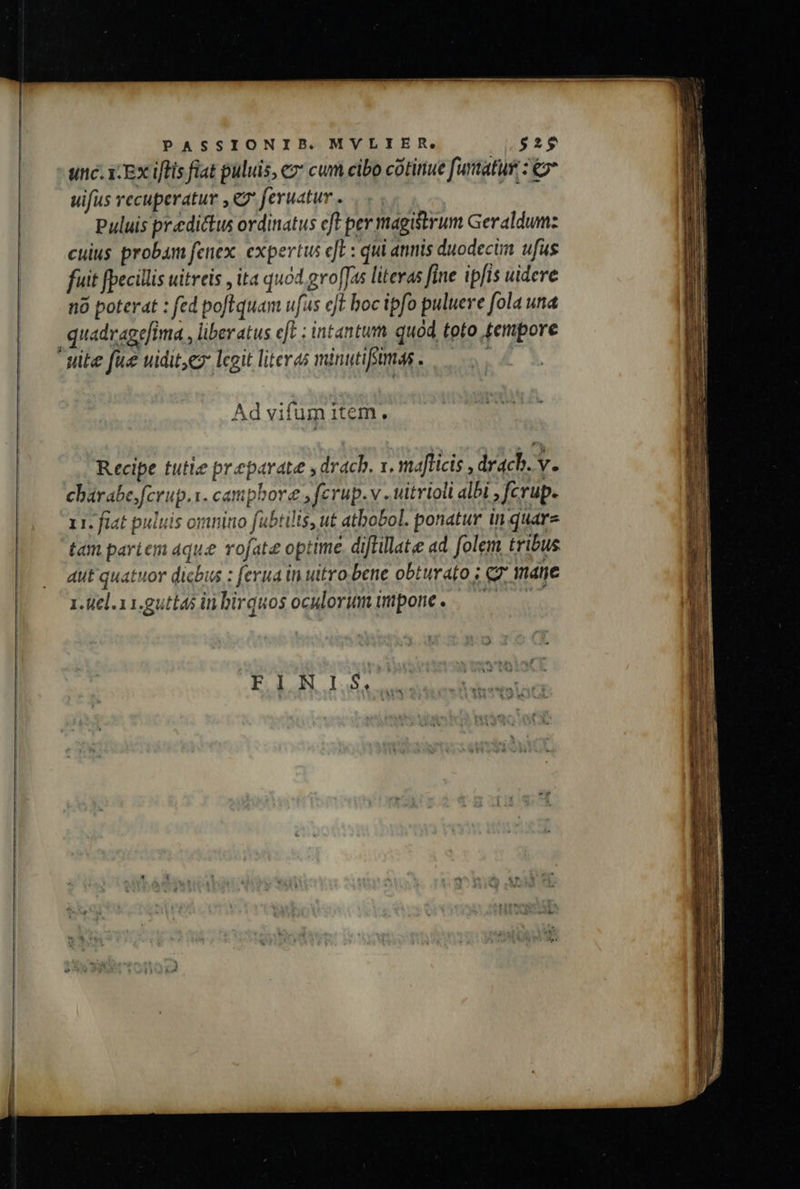 PASSIONIB. MVLIER. 525
unc. 1. Ex iſtis fiat puluis, & cum cibo cõtinue ſumatur : &
uiſus recuperatur , & ſeruatur .
Puluis prædictus ordinatus eſt per magiſtrum Geraldum:
cuius probam ſenex expertus eſt : qui annis duodecim uſus
fuit ſpecillis uitreis , ita quòd groſſas literas ſine ipſis uidere
nõ poterat : ſed poſtquam uſus eſt hoc ipſo puluere ſola una
quadrageſima , liberatus eſt : intantum quòd toto tempore
uitæ ſuæ uidit, & legit literas minutiſsimas .
Ad viſum item .
Recipe tutiæ præparatæ , drach. 1. maſticis , drach. v.
charabe, ſcrup. 1. camphoræ , ſcrup. v . uitrioli albi , ſcrup.
11. fiat puluis omnino ſubtilis, ut athobol. ponatur in quar=
tam partem aquæ roſatæ optime diſtillatæ ad ſolem tribus
aut quatuor diebus : ſerua in uitro bene obturato ; & mane
1. uel. 11. guttas in hirquos oculorum impone .
FINIS.